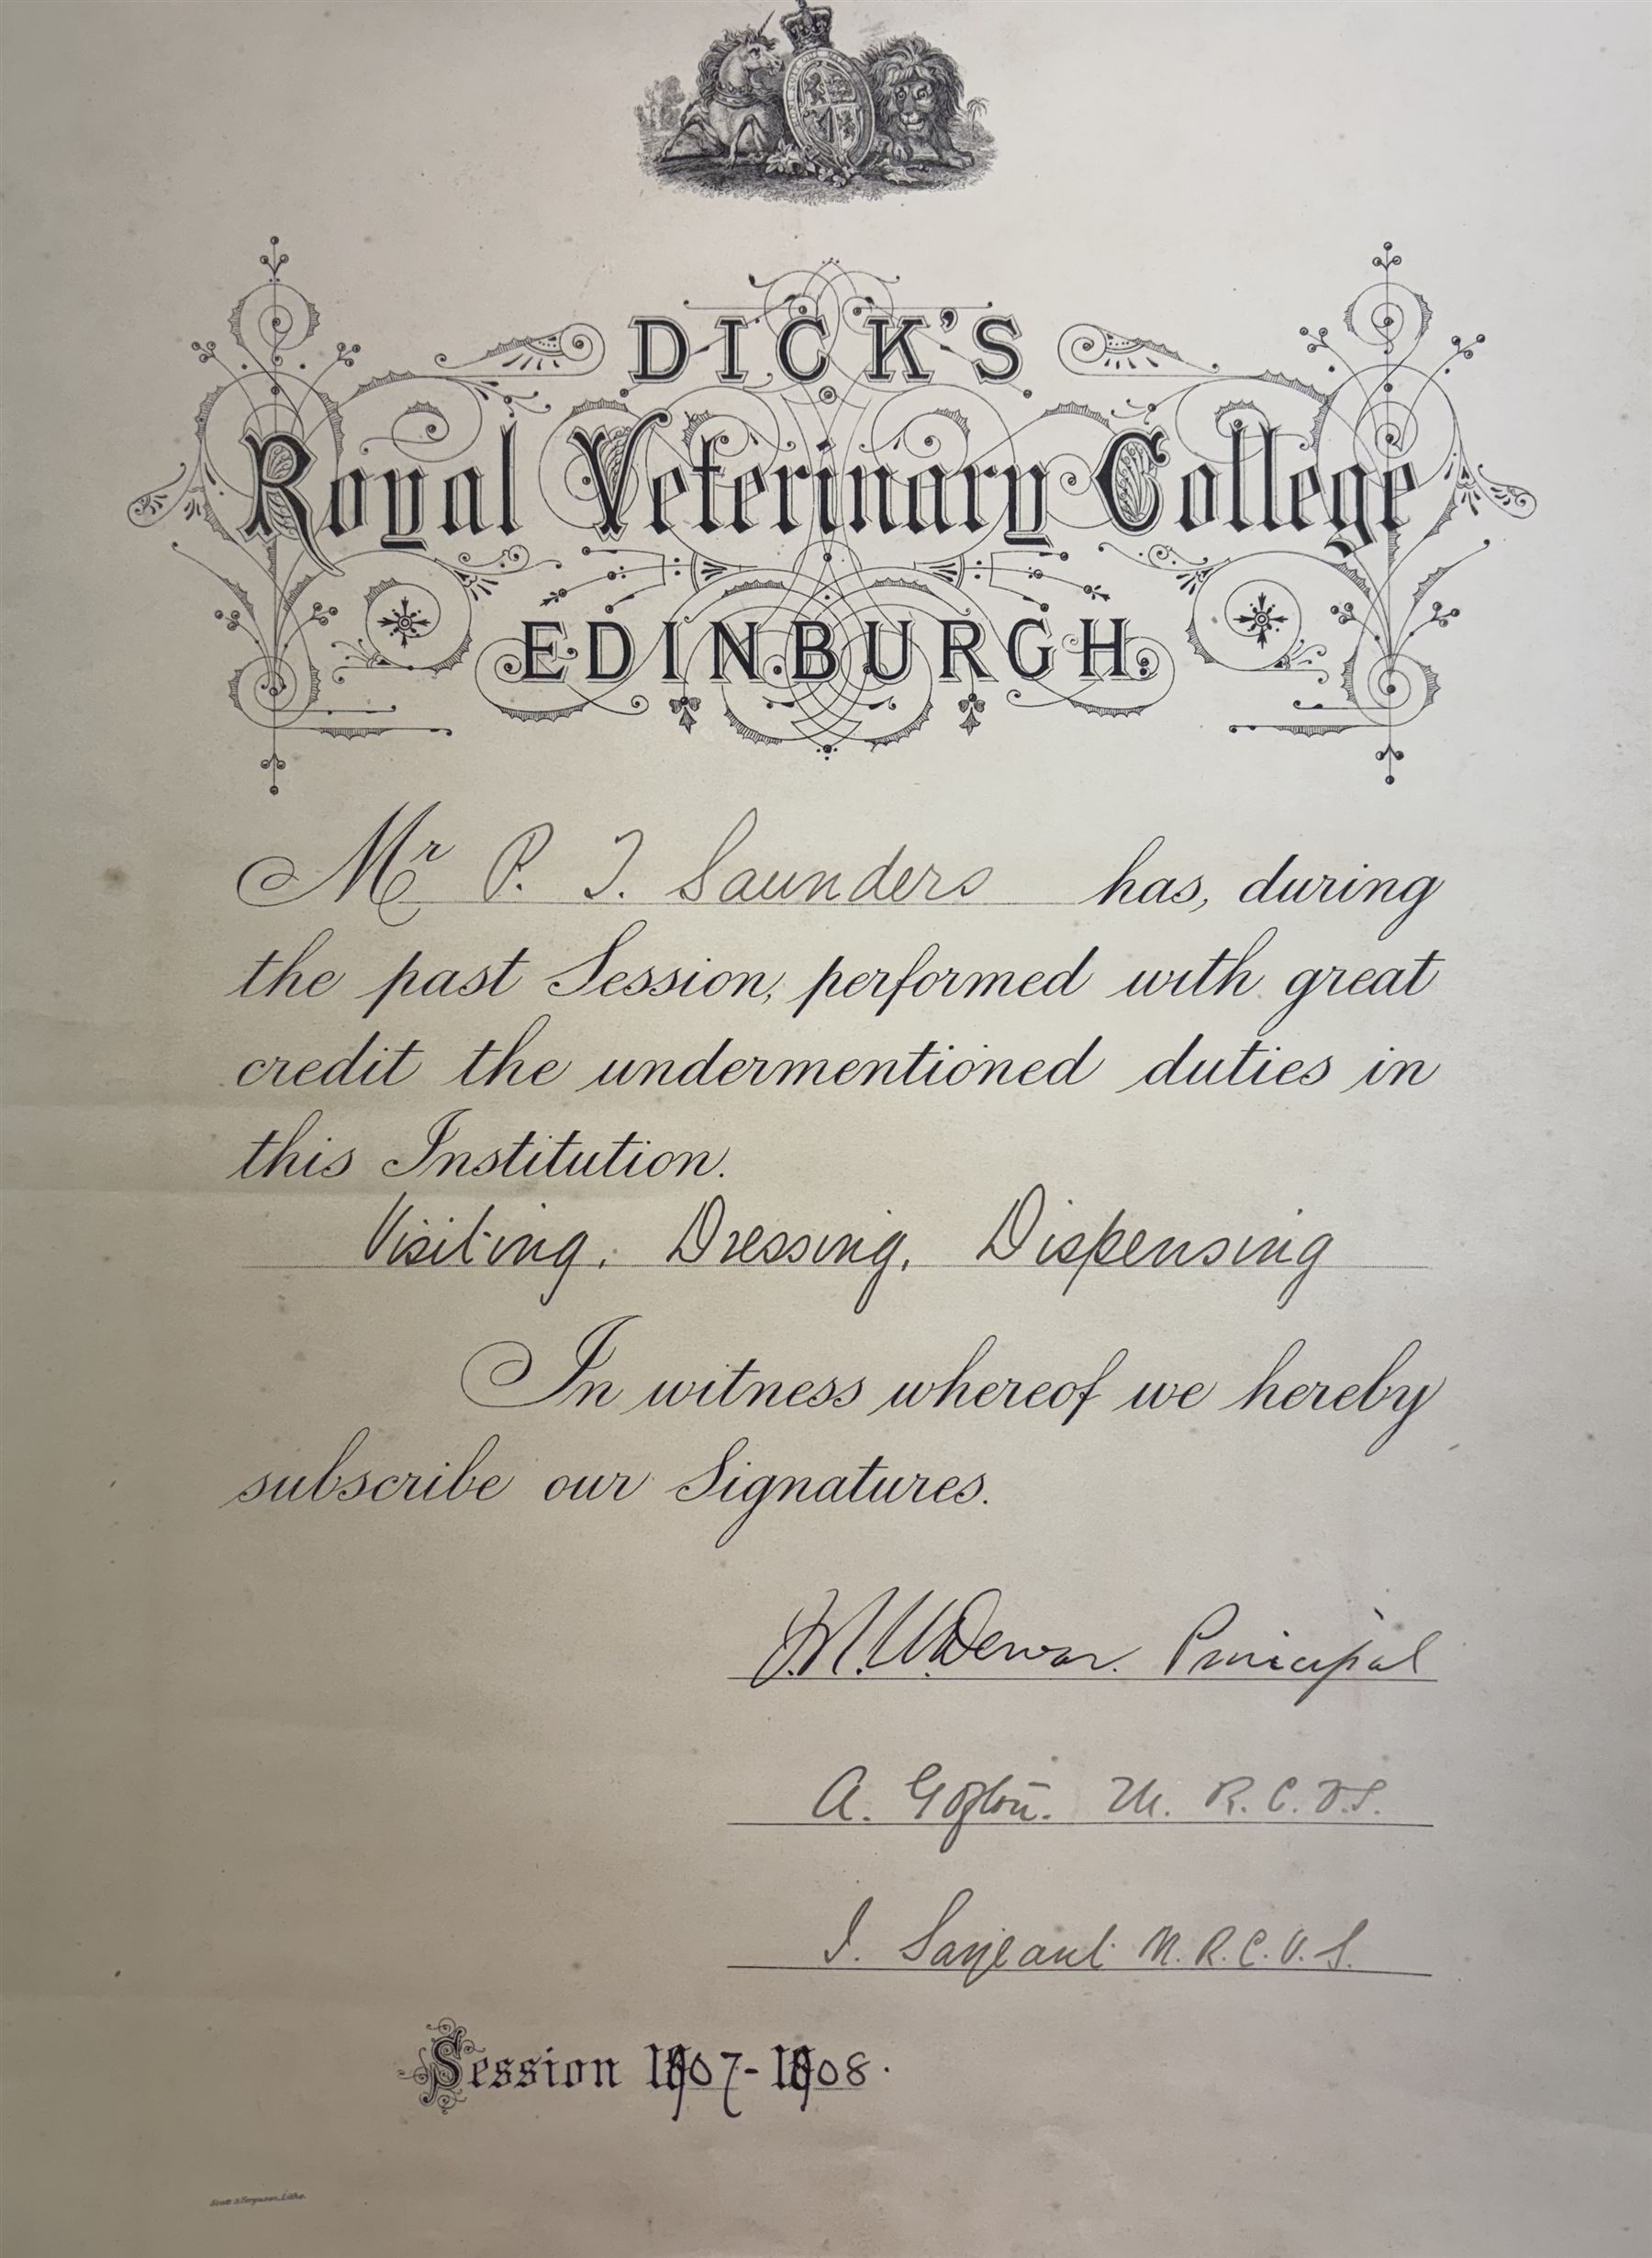 DICK'S
Royal Veterinary College
EDINBURGH.
Mr P. T. Saunders has, during
the past Session, performed with great
credit the undermentioned duties in
this Institution.
Visiting, Dressing, Dispensing
In witness whereof we hereby
subscribe our Signatures.
Dewar. Principal
A. Gofton. M. R. C. V. S.
I. Sarjeant M. R. C. V. S.
Session 1907-1908.
Scott & Ferguson, Litho.